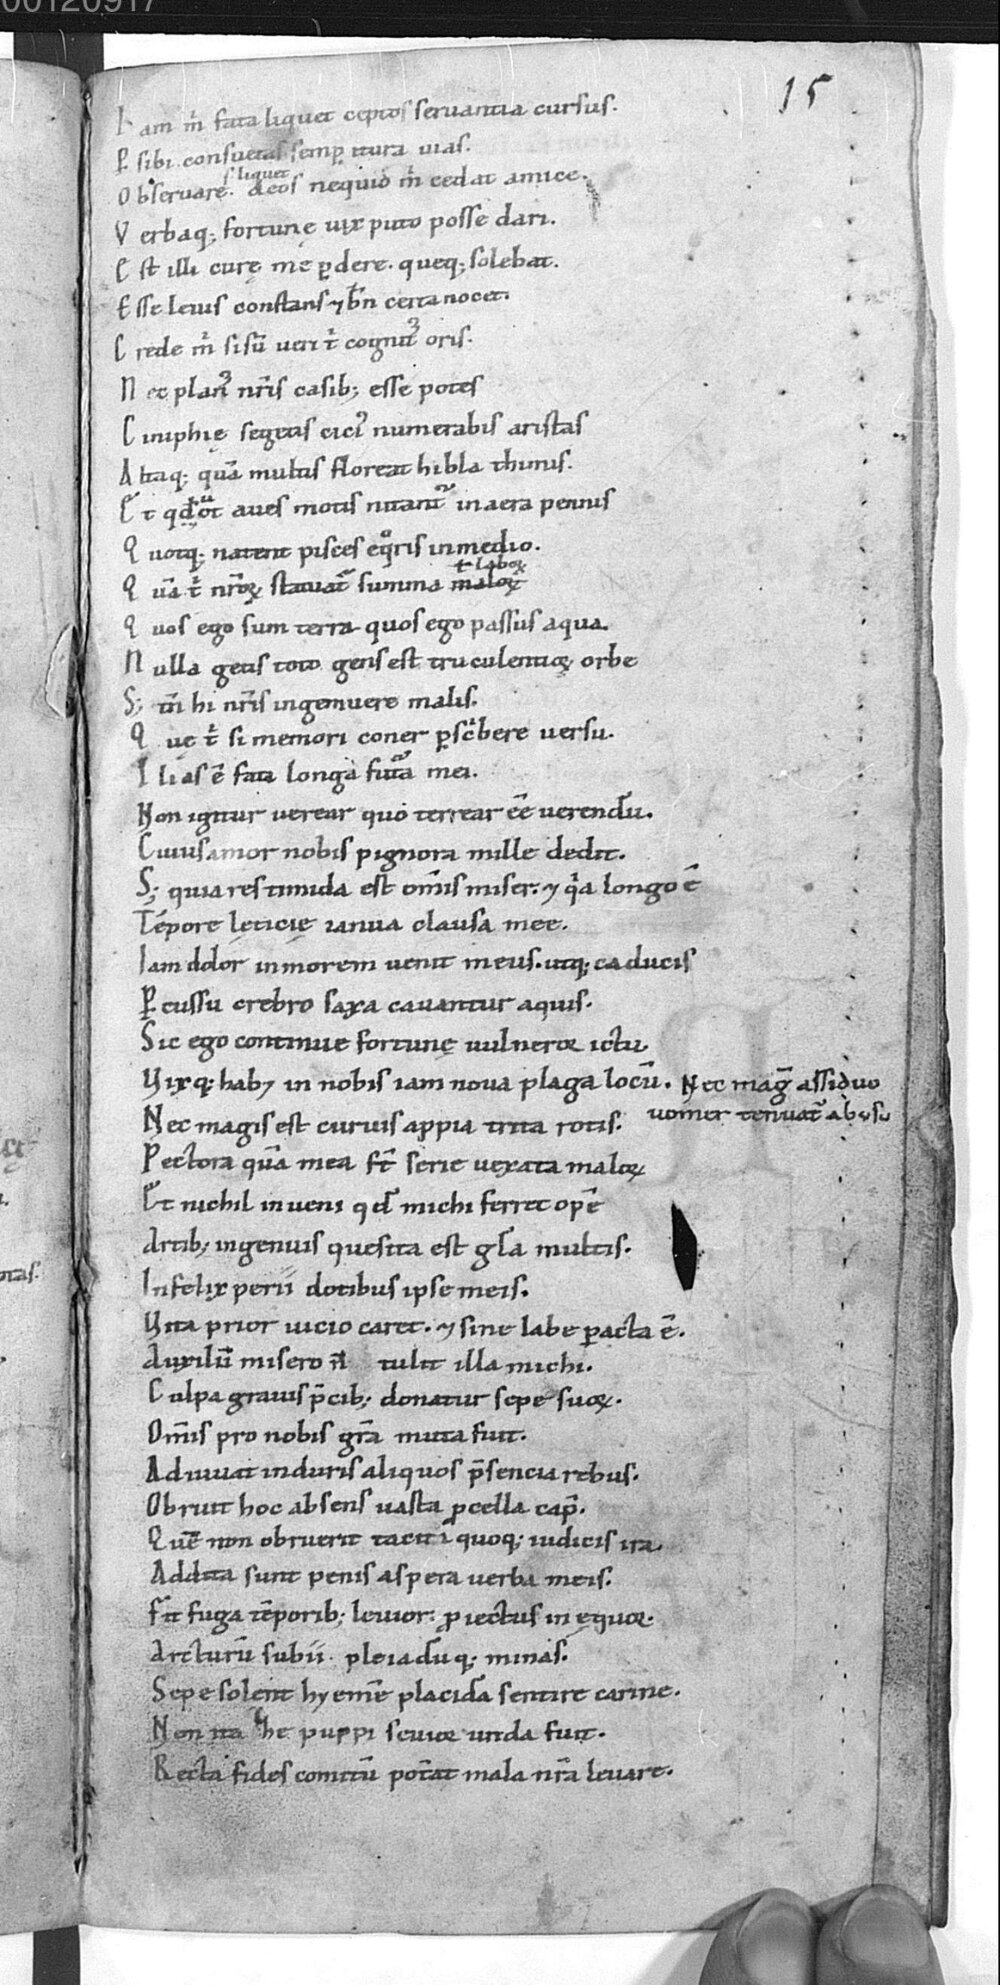 00120917
15
I am m̃ fata liquet ceptos seruantia cursus.
P sibi consuetas semp itura uias.
s. liquet
O bseruare. deos nequid m̃ cedat amice.
V erbaq; fortunę uix puto posse dari.
E st illi curę me pdere. queq; solebat.
E sse leuis constans ⁊ bñ certa nocet.
C rede m̃ si sũ ueri t̃ cognit᷒ oris.
N ec plan᷒ nr̃is casib; esse potes
C iniphię segetis citi᷒ numerabis aristas
A ltaq; quã multis floreat hibla thimis.
E t qd̃ot aues motis nitant᷑ in aera pennis
Q uotq; natent pisces eq̊ris in medio.
ł laboꝝ
Q uã t̃ nr̃oꝝ statuat᷑ summa maloꝝ
Q uos ego sum terra quos ego passus aqua.
N ulla getis toto gens est truculentioꝝ orbe
S; tm̃ hi nr̃is ingemuere malis.
Q uę t̃ si memori coner pscᷤbere uersu.
I lias ẽ fata longa fut᷑a mei.
Non igitur uerear quo terrear eẽ uerendũ.
Cuius amor nobis pignora mille dedit.
S; quia res timida est om̃is miser. ⁊ q̃a longo ẽ
Tẽpore lęticię ianua clausa mee.
Iam dolor in morem uenit meus. utq; caducis
Pcussu crebro saxa cauantur aquis.
Sic ego continue fortunę uulneror ictu
Vixq; hab; in nobis iam noua plaga locũ. Nec mag̃ assiduo
uomer tenuat᷑ ab usu
Nec magis est curuis appia trita rotis.
Pectora quã mea st̃ serie uexata maloꝝ
Et nichil inueni qd̃ michi ferret opẽ
Artib; ingenuis quesita est gl̃a multis.
Infelix perii dotibus ipse meis.
Vita prior uicio caret. ⁊ sine labe pacta ẽ.
Auxiliũ misero ñl tulit illa michi.
Culpa grauis p̃cib; donatur sepe suoꝝ.
Om̃is pro nobis gr̃a muta fuit.
Adiuuat in duris aliquos p̃sencia rebus.
Obruit hoc absens uasta pcella cap̃.
Quẽ non obruerit taciti quoq; iudicis ira.
Addita sunt penis aspera uerba meis.
Fit fuga tẽporib; leuior: piectus in ęquor.
Arcturũ subii pleiadũq; minas.
Sepe solent hyemẽ placidã sentire carine.
Non ita he puppi seuior unda fuit.
Recta fides comitũ pot̃at mala nr̃a leuare.